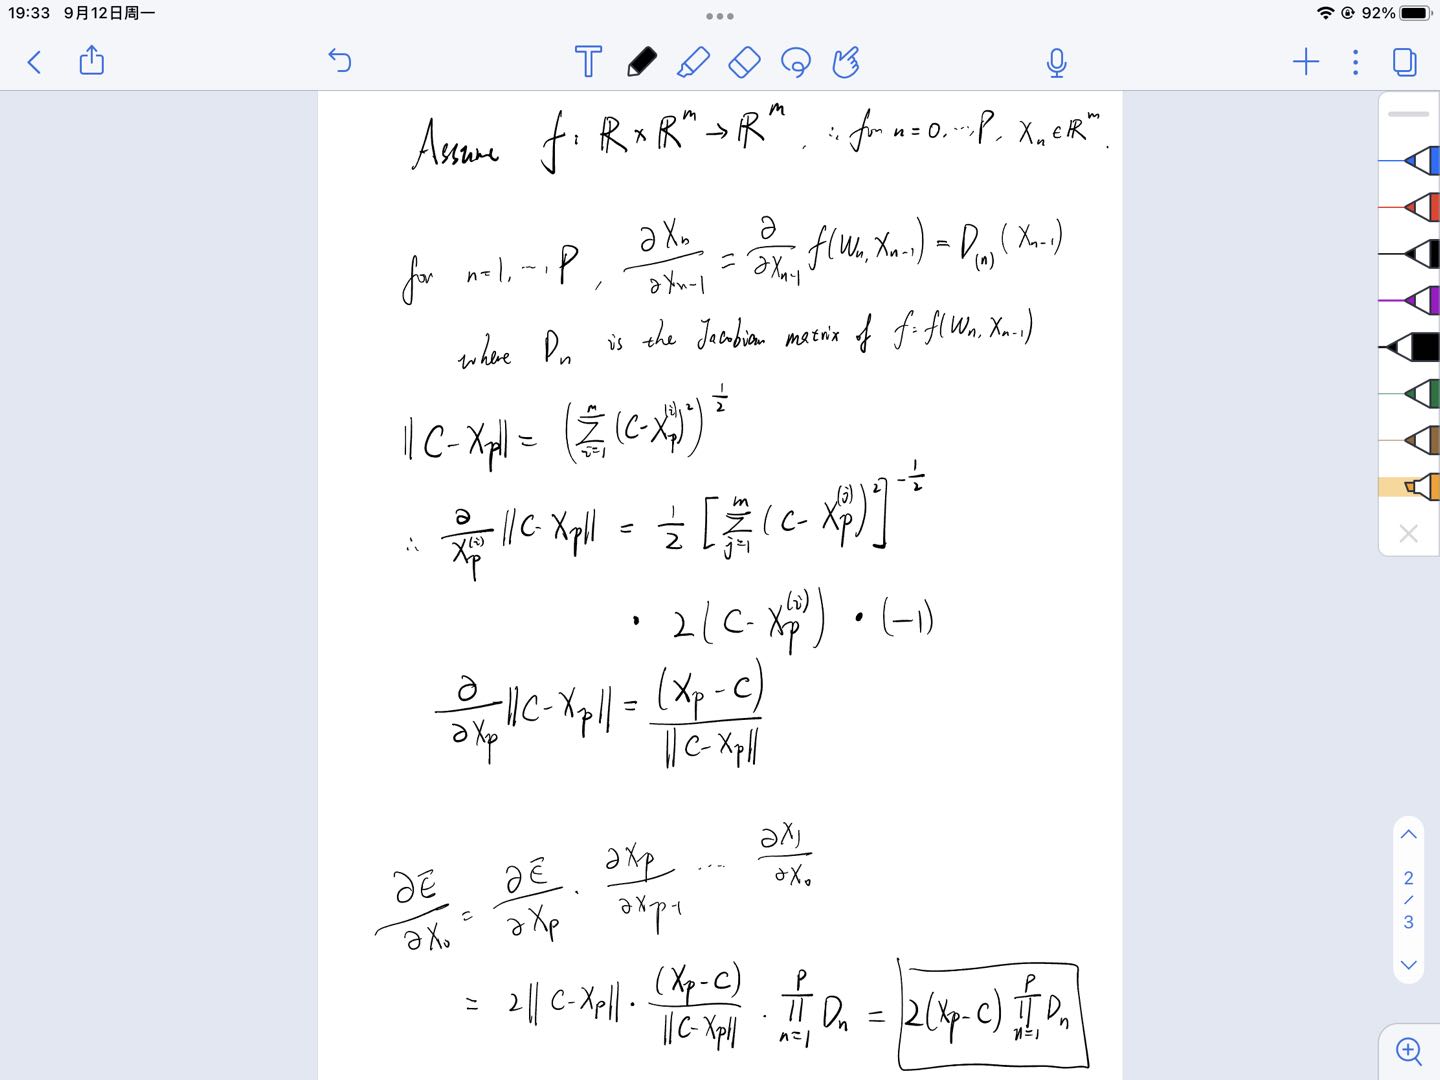 19:33 9月12日周一
92%
T
Assume f: ℝ × ℝ^m → ℝ^m, ∴ for n=0,…,P, X_n ∈ ℝ^m.
for n=1,…,P, ∂X_n/∂X_{n-1} = ∂/∂X_{n-1} f(W_n, X_{n-1}) = D_{(n)}(X_{n-1})
where D_n is the Jacobian matrix of f=f(W_n, X_{n-1})
||C-X_p|| = (∑_{i=1}^m (C-X_p^{(i)})^2)^{1/2}
∴ ∂/X_p^{(i)} ||C-X_p|| = 1/2 [∑_{j=1}^m (C-X_p^{(j)})^2]^{-1/2}
· 2(C-X_p^{(i)}) · (-1)
∂/∂X_p ||C-X_p|| = (X_p-C)/||C-X_p||
∂E/∂X_0 = ∂E/∂X_p · ∂X_p/∂X_{p-1} … ∂X_1/∂X_0
= 2||C-X_p|| · (X_p-C)/||C-X_p|| · ∏_{n=1}^P D_n = 2(X_p-C) ∏_{n=1}^P D_n
2/3